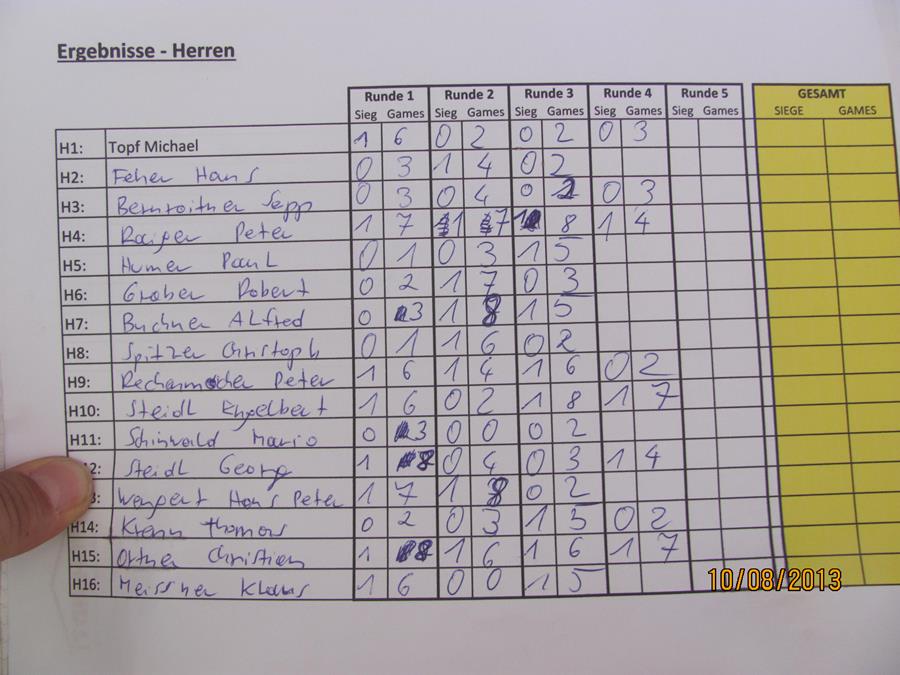 Ergebnisse - Herren
Runde 1 Runde 2 Runde 3 Runde 4 Runde 5 GESAMT
Sieg Games Sieg Games Sieg Games Sieg Games Sieg Games SIEGE GAMES
H1: Topf Michael 1 6 0 2 0 2 0 3
H2: Feher Hans 0 3 1 4 0 2
H3: Bernroitner Sepp 0 3 0 4 0 2 0 3
H4: Peter 1 7 1 7 1 8 1 4
H5: Humer Paul 0 1 0 3 1 5
H6: Gruber Robert 0 2 1 7 0 3
H7: Buchner Alfred 0 3 1 8 1 5
H8: Spitzer Christoph 0 1 1 6 0 2
H9: Peter 1 6 1 4 1 6 0 2
H10: Steidl Engelbert 1 6 0 2 1 8 1 7
H11: Schinwald Mario 0 3 0 0 0 2
Steidl Georg 1 8 0 4 0 3 1 4
Hans Peter 1 7 1 8 0 2
H14: Krenn Thomas 0 2 0 3 1 5 0 2
H15: Ortner Christian 1 8 1 6 1 6 1 7
H16: Meissner Klaus 1 6 0 0 1 5
10/08/2013